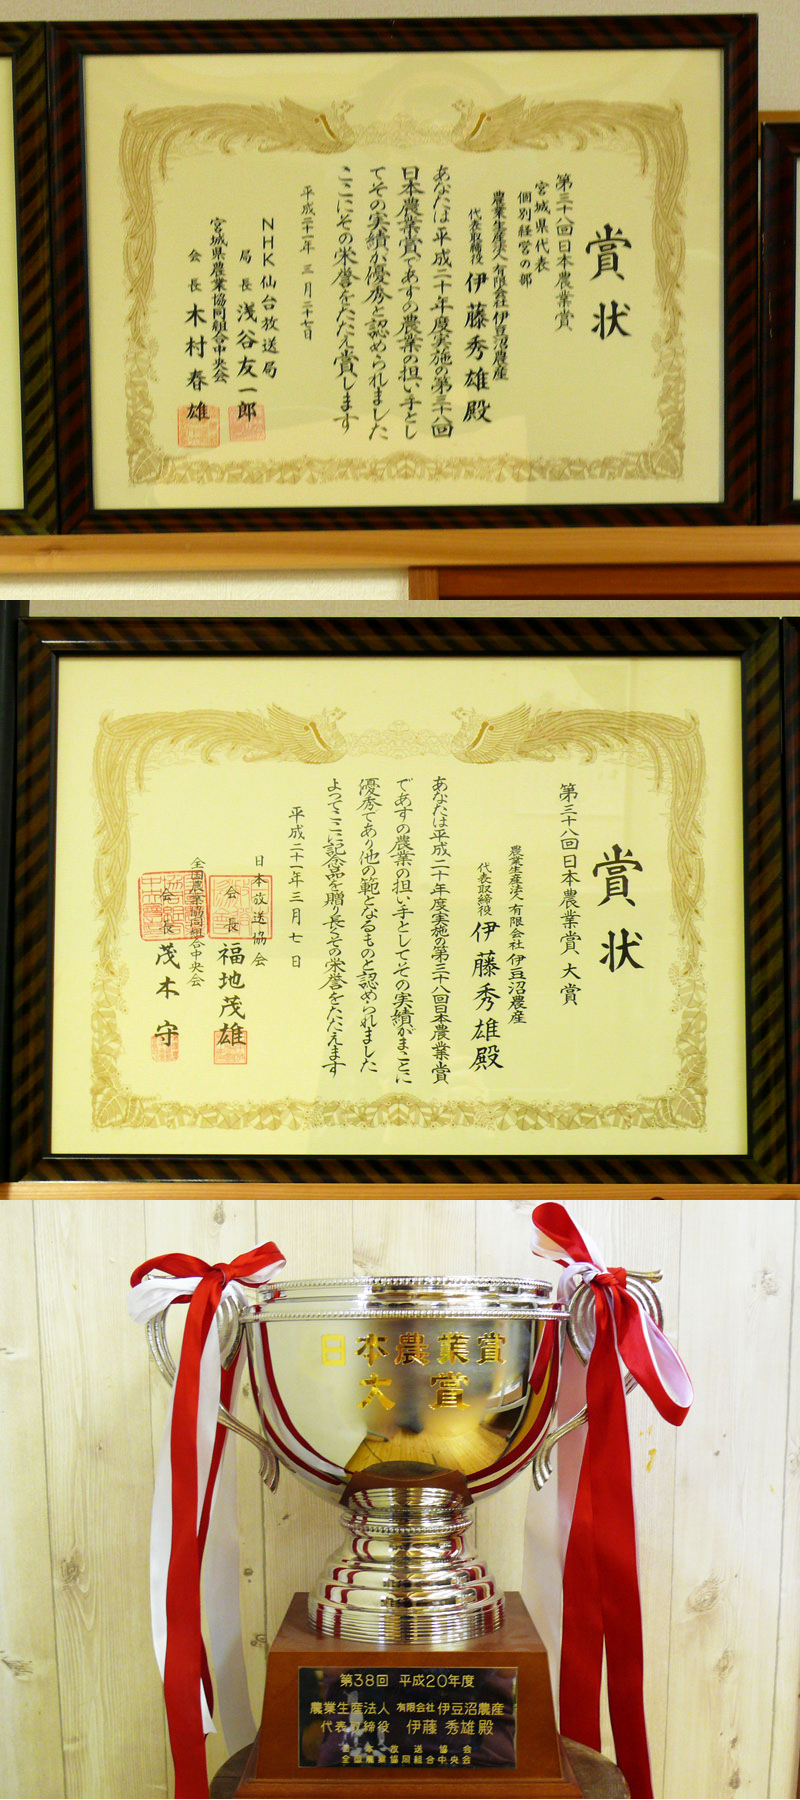 賞状
第三十八回日本農業賞
宮城県代表
個別経営の部
農業生産法人 有限会社 伊豆沼農産
代表取締役 伊藤秀雄殿
あなたは平成二十年度実施の第三十八回
日本農業賞であすの農業の担い手とし
てその実績が優秀と認められました
ここにその栄誉をたたえ賞します
平成二十一年三月二十七日
NHK仙台放送局
局長 浅谷友一郎
宮城県農業協同組合中央会
会長 木村春雄
賞状
第三十八回日本農業賞 大賞
農業生産法人 有限会社 伊豆沼農産
代表取締役 伊藤秀雄殿
あなたは平成二十年度実施の第三十八回日本農業賞
であすの農業の担い手としてその実績がまことに
優秀であり他の範となるものと認められました
よってここに記念品を贈り長くその栄誉をたたえます
平成二十一年三月七日
日本放送協会
会長 福地茂雄
全国農業協同組合中央会
会長 茂木守
日本農業賞
大賞
第38回 平成20年度
農業生産法人 有限会社 伊豆沼農産
代表取締役 伊藤 秀雄殿
日本放送協会
全国農業協同組合中央会